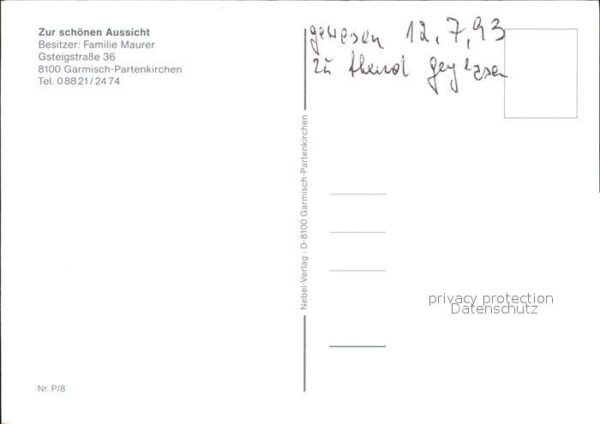 Zur schönen Aussicht
Besitzer: Familie Maurer
Gsteigstraße 36
8100 Garmisch-Partenkirchen
Tel. 0 88 21 / 24 74
gewesen 12,7,93
zu Abend gegessen
Nebel-Verlag · D-8100 Garmisch-Partenkirchen
privacy protection
Datenschutz
Nr. P/8